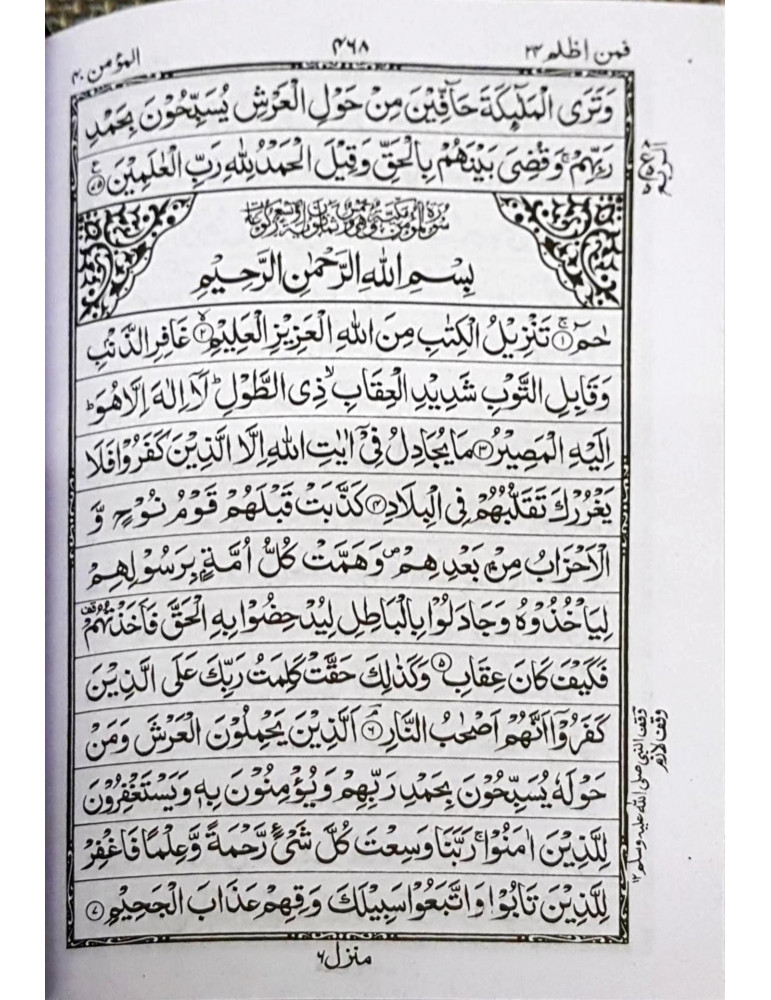 فمن اظلم ۲۴
۴۶۸
المؤمن ۴۰
وَتَرَى الْمَلٰٓئِكَةَ حَآفِّيْنَ مِنْ حَوْلِ الْعَرْشِ يُسَبِّحُوْنَ بِحَمْدِ
رَبِّهِمْ ۚ وَقُضِيَ بَيْنَهُمْ بِالْحَقِّ وَقِيْلَ الْحَمْدُ لِلّٰهِ رَبِّ الْعٰلَمِيْنَ ﴿۷۵﴾
بِسْمِ اللّٰهِ الرَّحْمٰنِ الرَّحِيْمِ
حٰمٓ ﴿۱﴾ تَنْزِيْلُ الْكِتٰبِ مِنَ اللّٰهِ الْعَزِيْزِ الْعَلِيْمِ ﴿۲﴾ غَافِرِ الذَّنْۢبِ
وَقَابِلِ التَّوْبِ شَدِيْدِ الْعِقَابِ ۙ ذِي الطَّوْلِ ؕ لَآ اِلٰهَ اِلَّا هُوَ ؕ
اِلَيْهِ الْمَصِيْرُ ﴿۳﴾ مَا يُجَادِلُ فِيْٓ اٰيٰتِ اللّٰهِ اِلَّا الَّذِيْنَ كَفَرُوْا فَلَا
يَغْرُرْكَ تَقَلُّبُهُمْ فِي الْبِلَادِ ﴿۴﴾ كَذَّبَتْ قَبْلَهُمْ قَوْمُ نُوْحٍ وَّ
الْاَحْزَابُ مِنْۢ بَعْدِهِمْ ۪ وَهَمَّتْ كُلُّ اُمَّةٍۭ بِرَسُوْلِهِمْ
لِيَاْخُذُوْهُ وَجَادَلُوْا بِالْبَاطِلِ لِيُدْحِضُوْا بِهِ الْحَقَّ فَاَخَذْتُهُمْ ۟
فَكَيْفَ كَانَ عِقَابِ ﴿۵﴾ وَكَذٰلِكَ حَقَّتْ كَلِمَتُ رَبِّكَ عَلَى الَّذِيْنَ
كَفَرُوْٓا اَنَّهُمْ اَصْحٰبُ النَّارِ ﴿۶﴾ۘ اَلَّذِيْنَ يَحْمِلُوْنَ الْعَرْشَ وَمَنْ
حَوْلَهٗ يُسَبِّحُوْنَ بِحَمْدِ رَبِّهِمْ وَيُؤْمِنُوْنَ بِهٖ وَيَسْتَغْفِرُوْنَ
لِلَّذِيْنَ اٰمَنُوْا ۚ رَبَّنَا وَسِعْتَ كُلَّ شَيْءٍ رَّحْمَةً وَّعِلْمًا فَاغْفِرْ
لِلَّذِيْنَ تَابُوْا وَاتَّبَعُوْا سَبِيْلَكَ وَقِهِمْ عَذَابَ الْجَحِيْمِ ﴿۷﴾
وقف النبي صلى الله عليه وسلم ۱۲
وقف لازم
منزل ۶